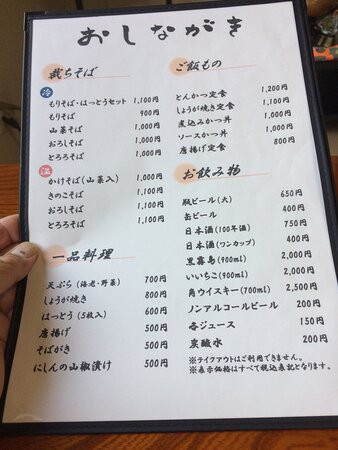 おしながき
裁ちそば
冷
もりそば・はっとうセット 1,100円
もりそば 900円
山菜そば 1,000円
おろしそば 1,000円
とろろそば 1,000円
温
かけそば(山菜入) 1,000円
きのこそば 1,100円
おろしそば 1,100円
とろろそば 1,100円
一品料理
天ぷら(海老・野菜) 700円
しょうが焼き 800円
はっとう(5枚入) 600円
唐揚げ 500円
そばがき 500円
にしんの山椒漬け 500円
ご飯もの
とんかつ定食 1,200円
しょうが焼き定食 1,100円
煮込みかつ丼 1,000円
ソースかつ丼 1,000円
唐揚げ定食 800円
お飲み物
瓶ビール(大) 650円
缶ビール 400円
日本酒(100年酒) 750円
日本酒(ワンカップ) 400円
黒霧島(900ml) 2,000円
いいちこ(900ml) 2,000円
角ウイスキー(700ml) 2,500円
ノンアルコールビール 200円
各ジュース 150円
炭酸水 200円
※テイクアウトはご利用できません。
※表示価格はすべて税込表記となります。